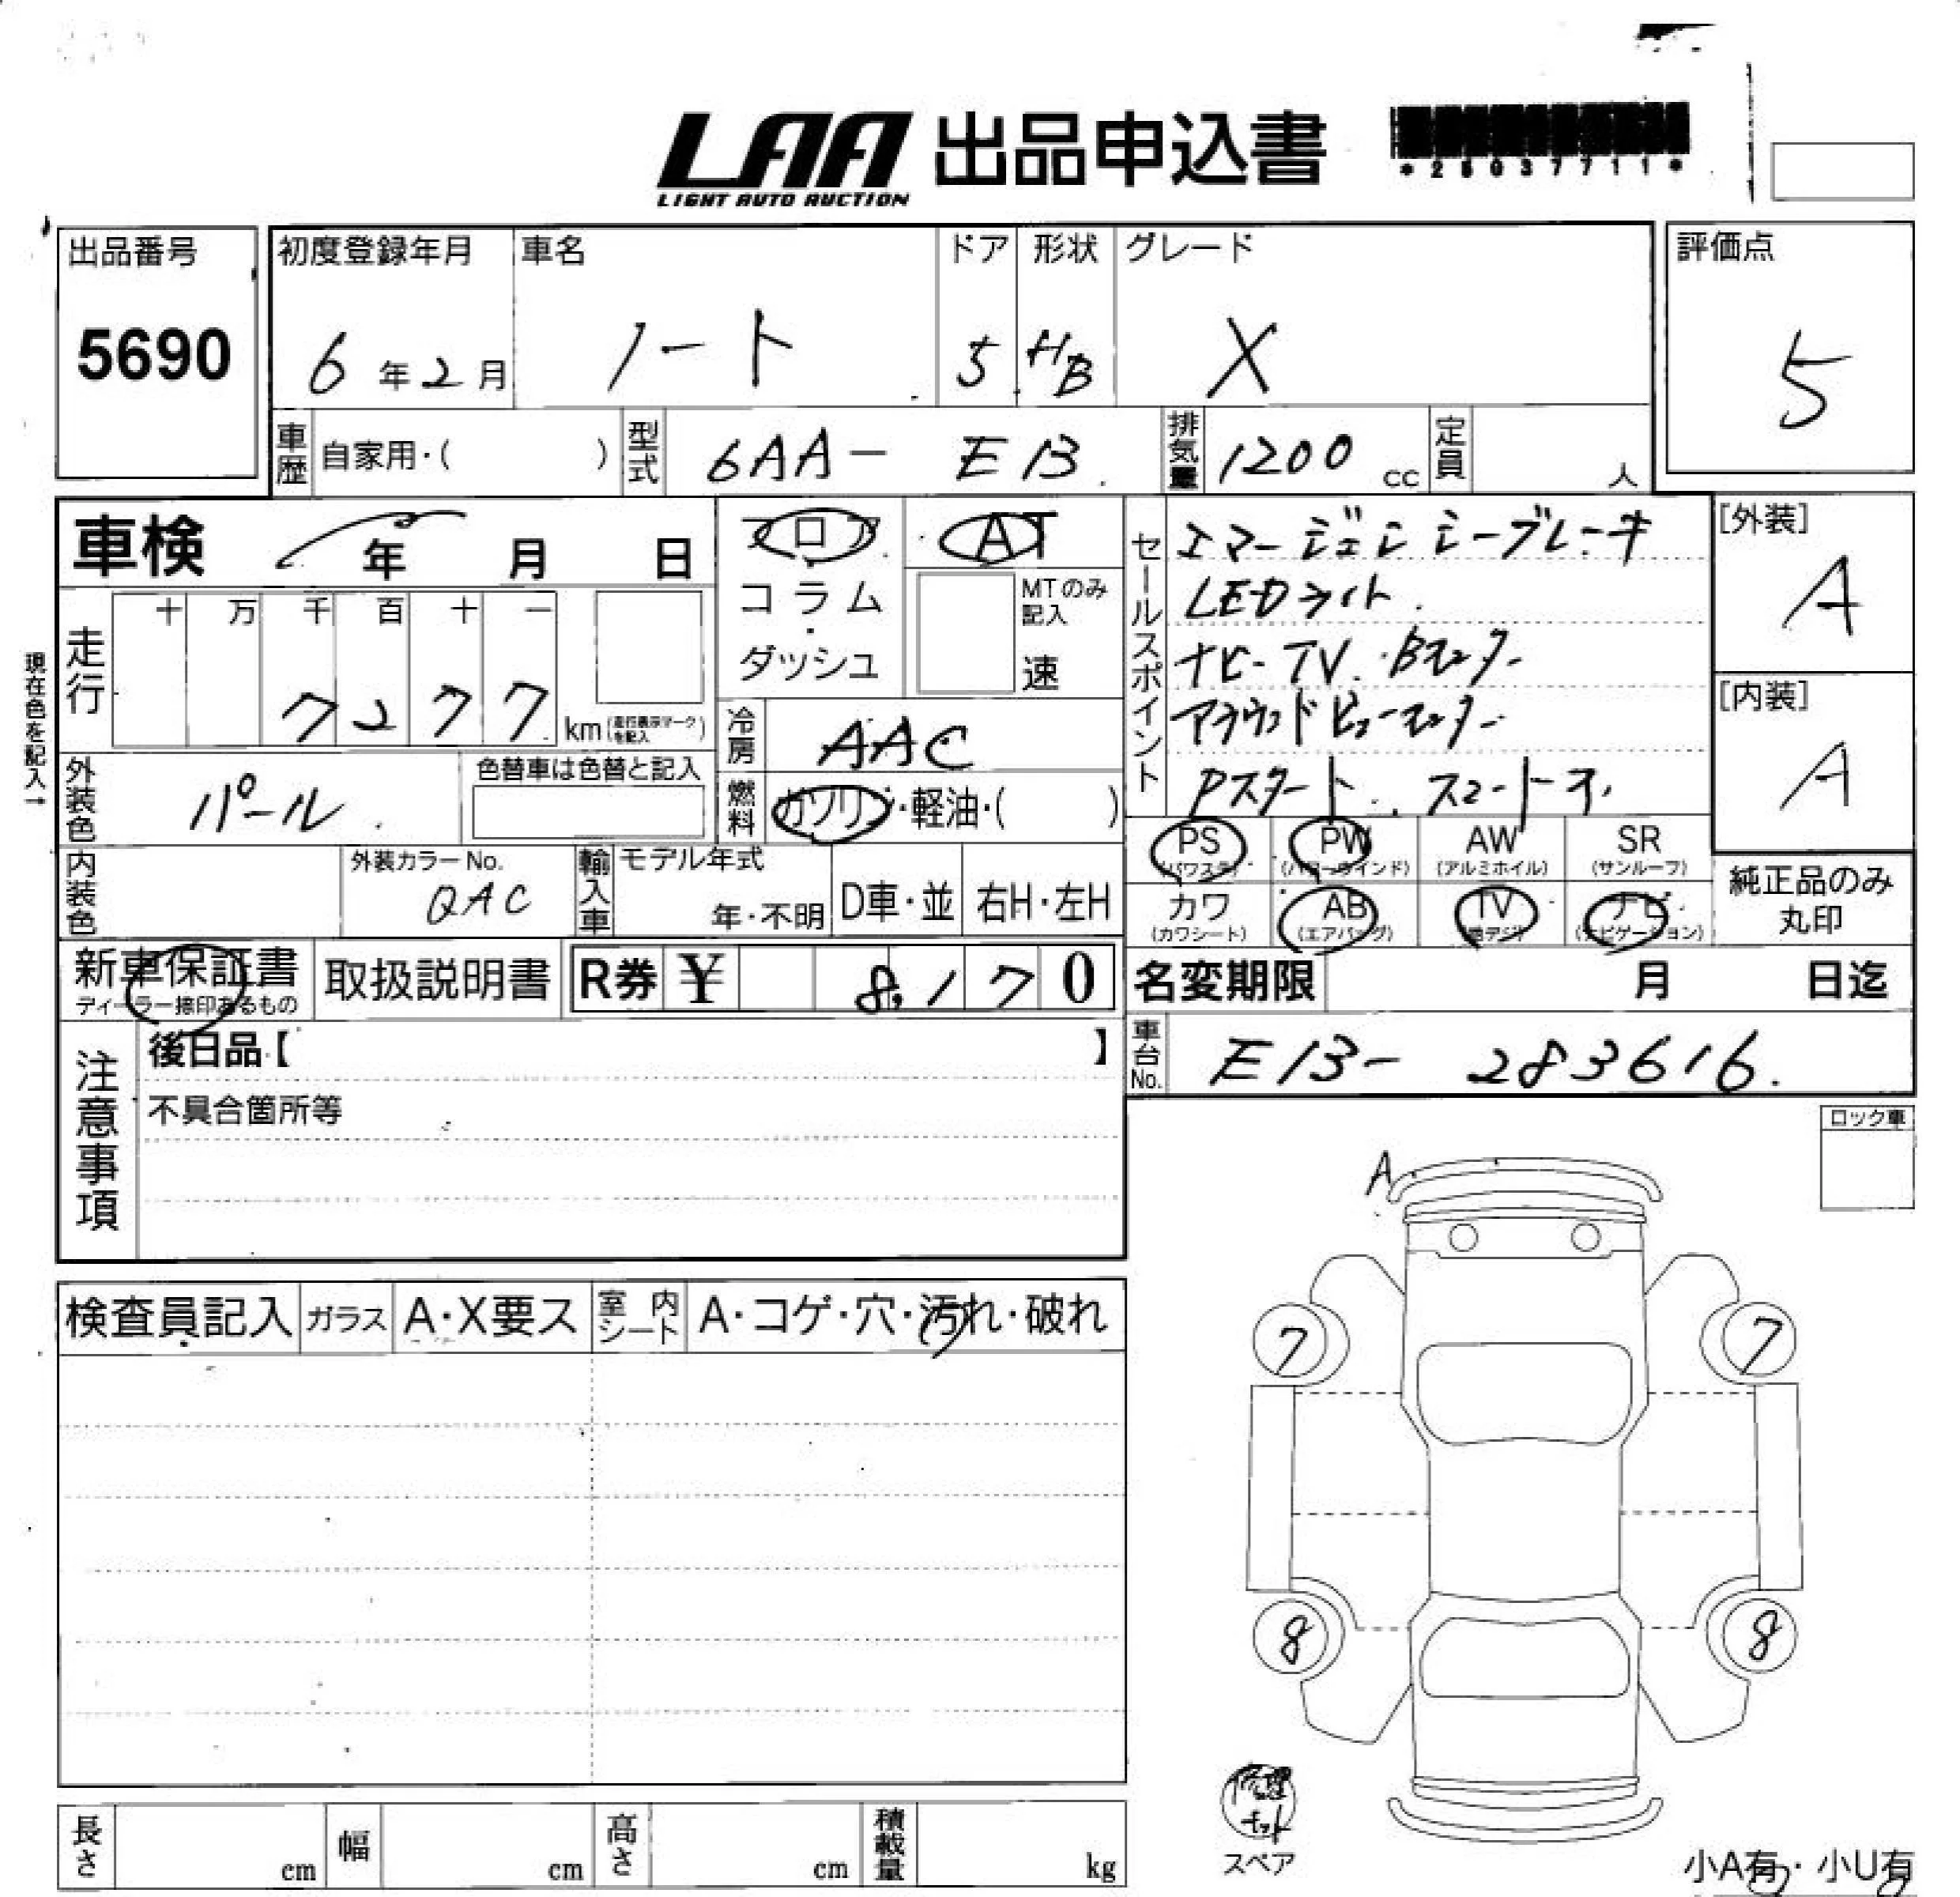 LAA 出品申込書
LIGHT AUTO AUCTION
出品番号
5690
初度登録年月
6年2月
車名
ノート
ドア
5
形状
HB
グレード
X
評価点
5
車歴 自家用・( )
型式 6AA- E13
排気量 1200 cc
定員 人
車検 年 月 日
フロア・コラム・ダッシュ
AT
MTのみ記入
速
セールスポイント
エマージェンシーブレーキ
LEDライト
ナビ-TV. Bモニター
アラウンドビューモニター
Pスタート
[外装]
A
[内装]
A
現在色を記入→
走行
十 万 千 百 十 一
7277 km(走行表示マークを記入)
冷房 AAC
外装色 パール
色替車は色替と記入
燃料 ガソリン・軽油・( )
内装色
外装カラーNo.
QAC
輸入車 モデル年式
年・不明
D車・並
右H・左H
PS (パワステ)
PW (パワーウインド)
AW (アルミホイル)
SR (サンルーフ)
カワ (カワシート)
AB (エアバッグ)
TV (地デジ)
ナビ (ナビゲーション)
純正品のみ
丸印
新車保証書
ディーラー捺印あるもの
取扱説明書
R券 ¥ 8,170
名変期限 月 日迄
車台No. E13- 283616.
注意事項
後日品【 】
不具合箇所等
ロック車
A
検査員記入
ガラス A・X要ス
室内シート A・コゲ・穴・汚れ・破れ
7 7
8 8
修理キット
スペア
長さ cm
幅 cm
高さ cm
積載量 kg
小A有・小U有